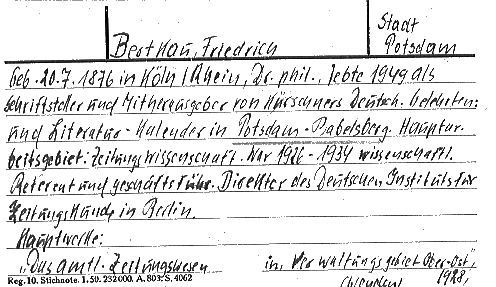 Stadt
Potsdam
Berthau, Friedrich
geb. 20.7.1876 in Köln/Rhein, Dr. phil., lebte 1949 als
Schriftsteller und Mitherausgeber von Kürschners Deutsch. Gelehrten-
und Literatur-Kalender in Potsdam-Babelsberg. Hauptar-
beitsgebiet: Zeitungswissenschaft. War 1926-1934 wissenschaftl.
Referent und geschäftsführ. Direktor des Deutschen Instituts für
Zeitungskunde in Berlin.
Hauptwerke:
„Das amtl. Zeitungswesen im Verwaltungsgebiet Ober-Ost",
Reg. 10. Stichnote. 1.50. 232000. A. 803/S. 4062 1928,